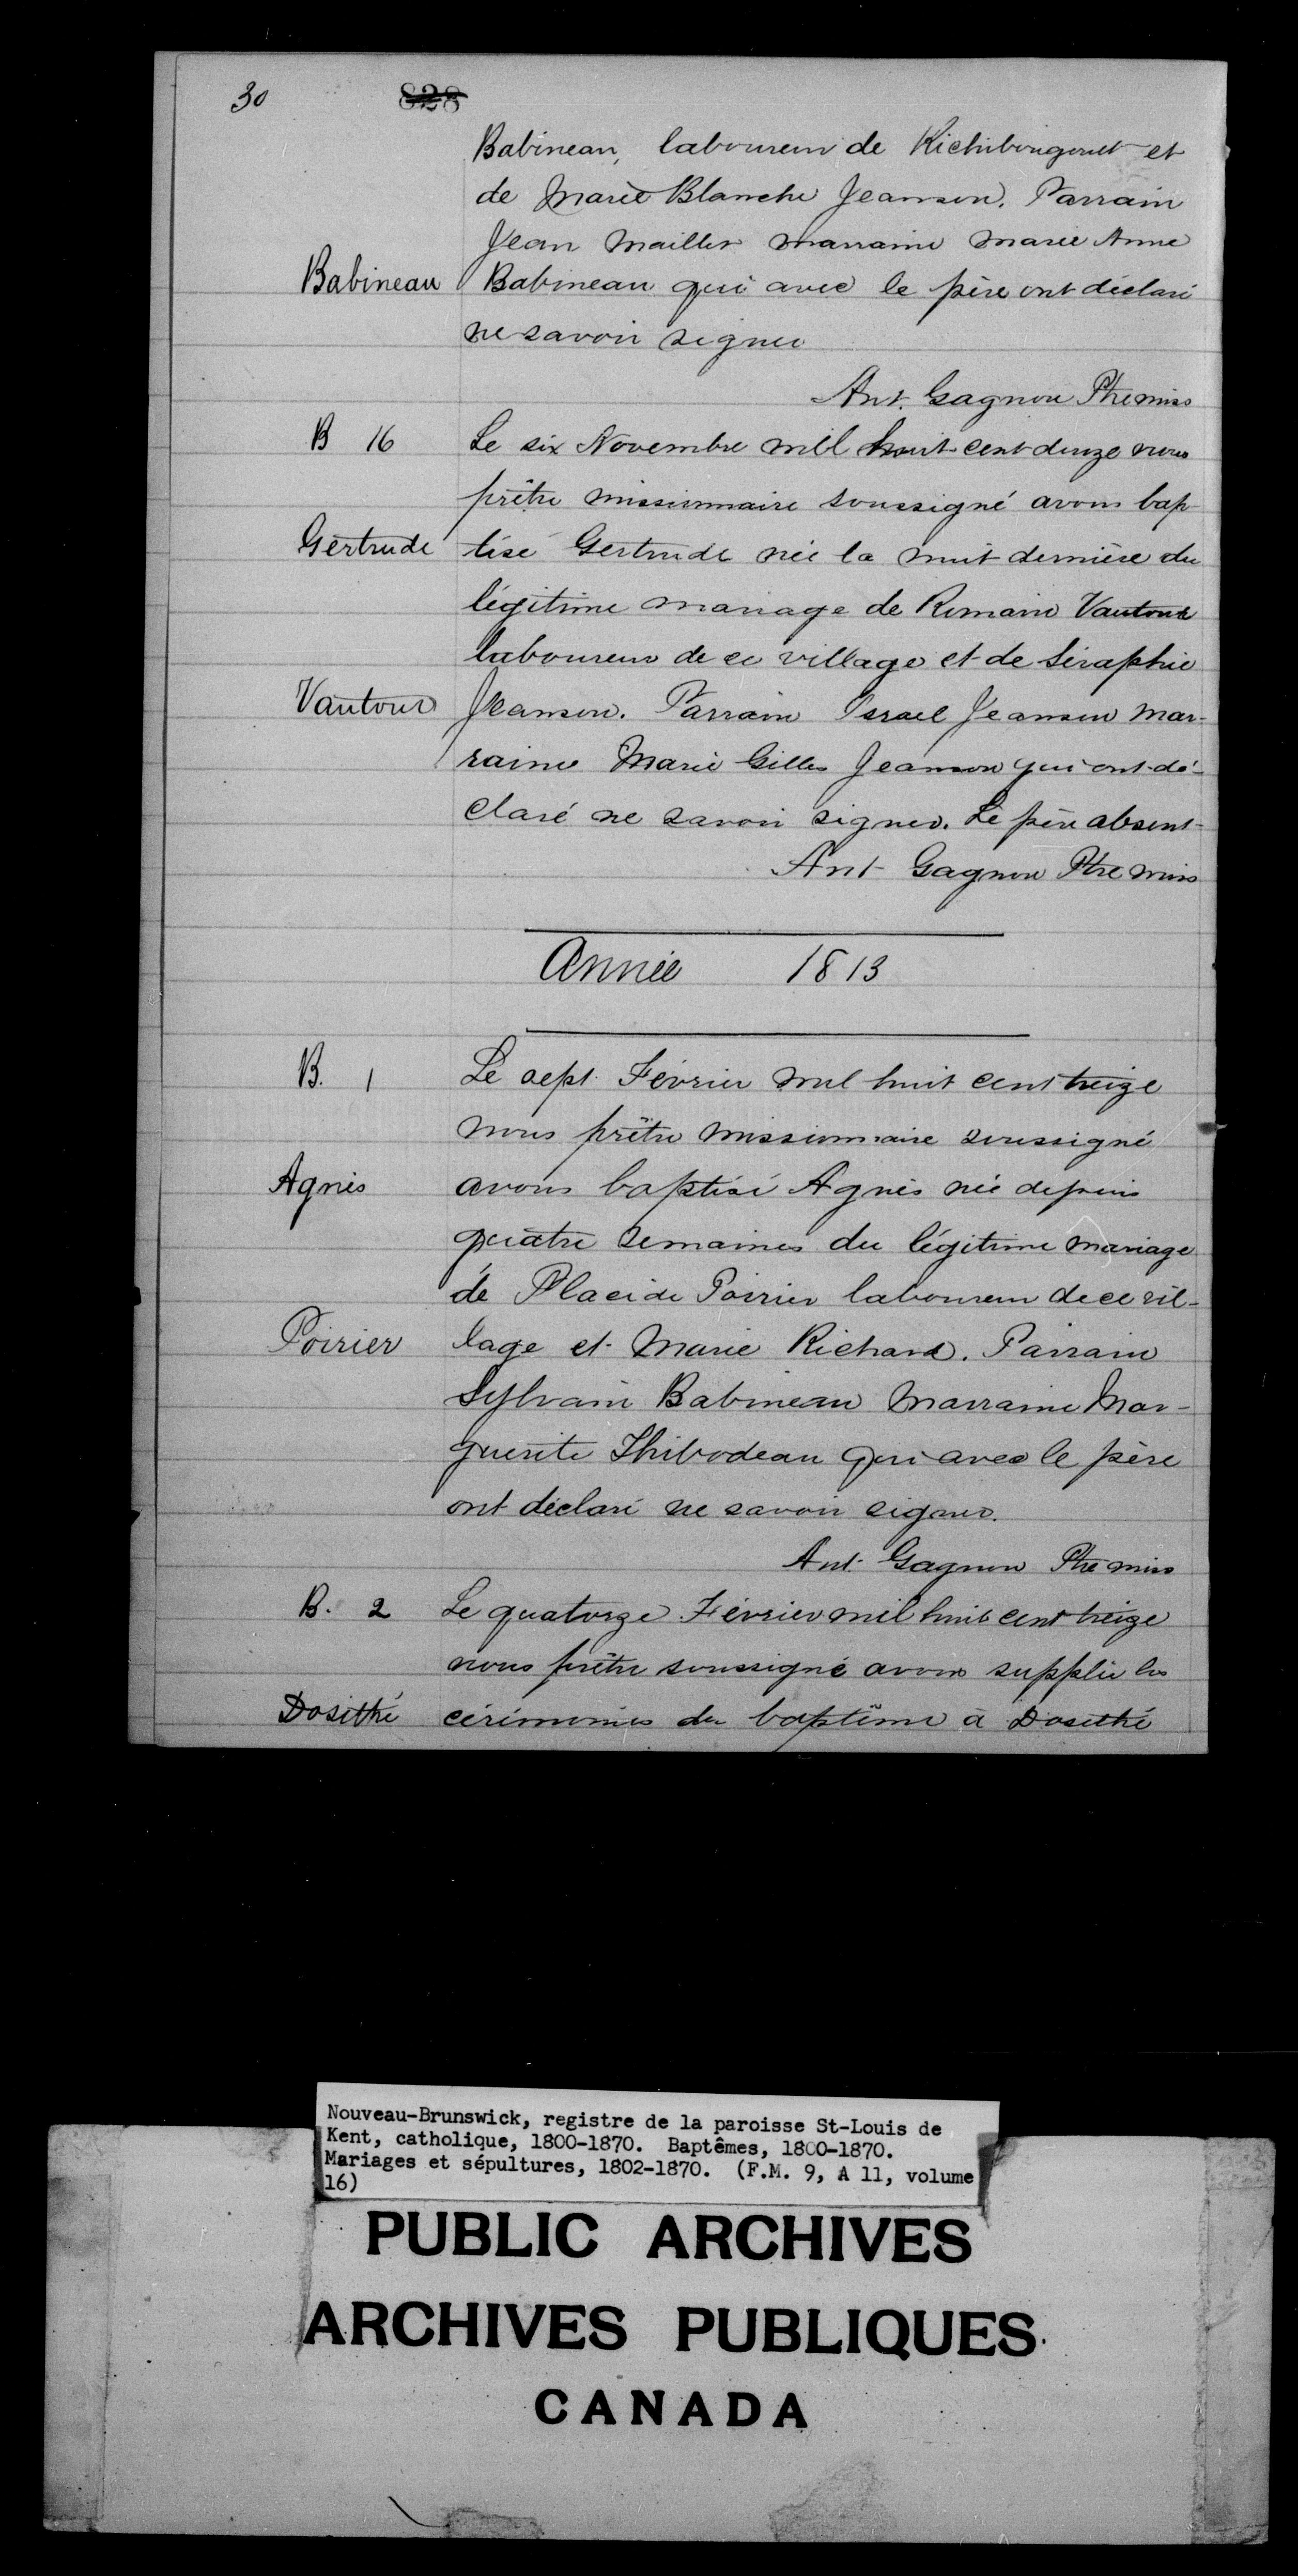 30 828
Babineau, laboureur de Richibougouet et
de Marie Blanche Jeanson. Parrain
Jean Maillet marraine Marie Anne
Babineau Babineau qui avec le père ont déclaré
ne savoir signer
Ant. Gagnon Ptre miss
B 16 Le six Novembre mil huit cent douze nous
prêtre missionnaire soussigné avons bap-
Gertrude tisé Gertrude née la nuit dernière du
légitime mariage de Romain Vautour
laboureur de ce village et de Séraphie
Vautour Jeanson. Parrain Israel Jeanson mar-
raine Marie Gilles Jeanson qui ont dé-
claré ne savoir signer. Le père absent-
Ant Gagnon Ptre miss
Année 1813
B. 1 Le sept Février mil huit cent treize
nous prêtre missionnaire soussigné
Agnès avons baptisé Agnès née depuis
quatre semaines du légitime mariage
de Placide Poirier laboureur de ce vil-
Poirier lage et Marie Richard. Parrain
Sylvain Babineau Marraine Mar-
guerite Thibodeau qui avec le père
ont déclaré ne savoir signer.
Ant. Gagnon Ptre miss
B. 2 Le quatorze Février mil huit cent treize
nous prêtre soussigné avons supplié les
Dosithé cérémonies du baptême à Dosithé
Nouveau-Brunswick, registre de la paroisse St-Louis de
Kent, catholique, 1800-1870. Baptêmes, 1800-1870.
Mariages et sépultures, 1802-1870. (F.M. 9, A 11, volume
16)
PUBLIC ARCHIVES
ARCHIVES PUBLIQUES
CANADA